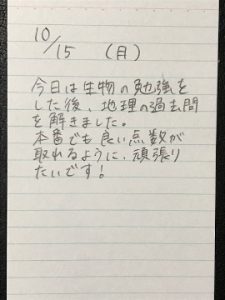 10/15 (日)
今日は生物の勉強を
した後、地理の過去問
を解きました。
本番でも良い点数が
取れるように、頑張り
たいです!